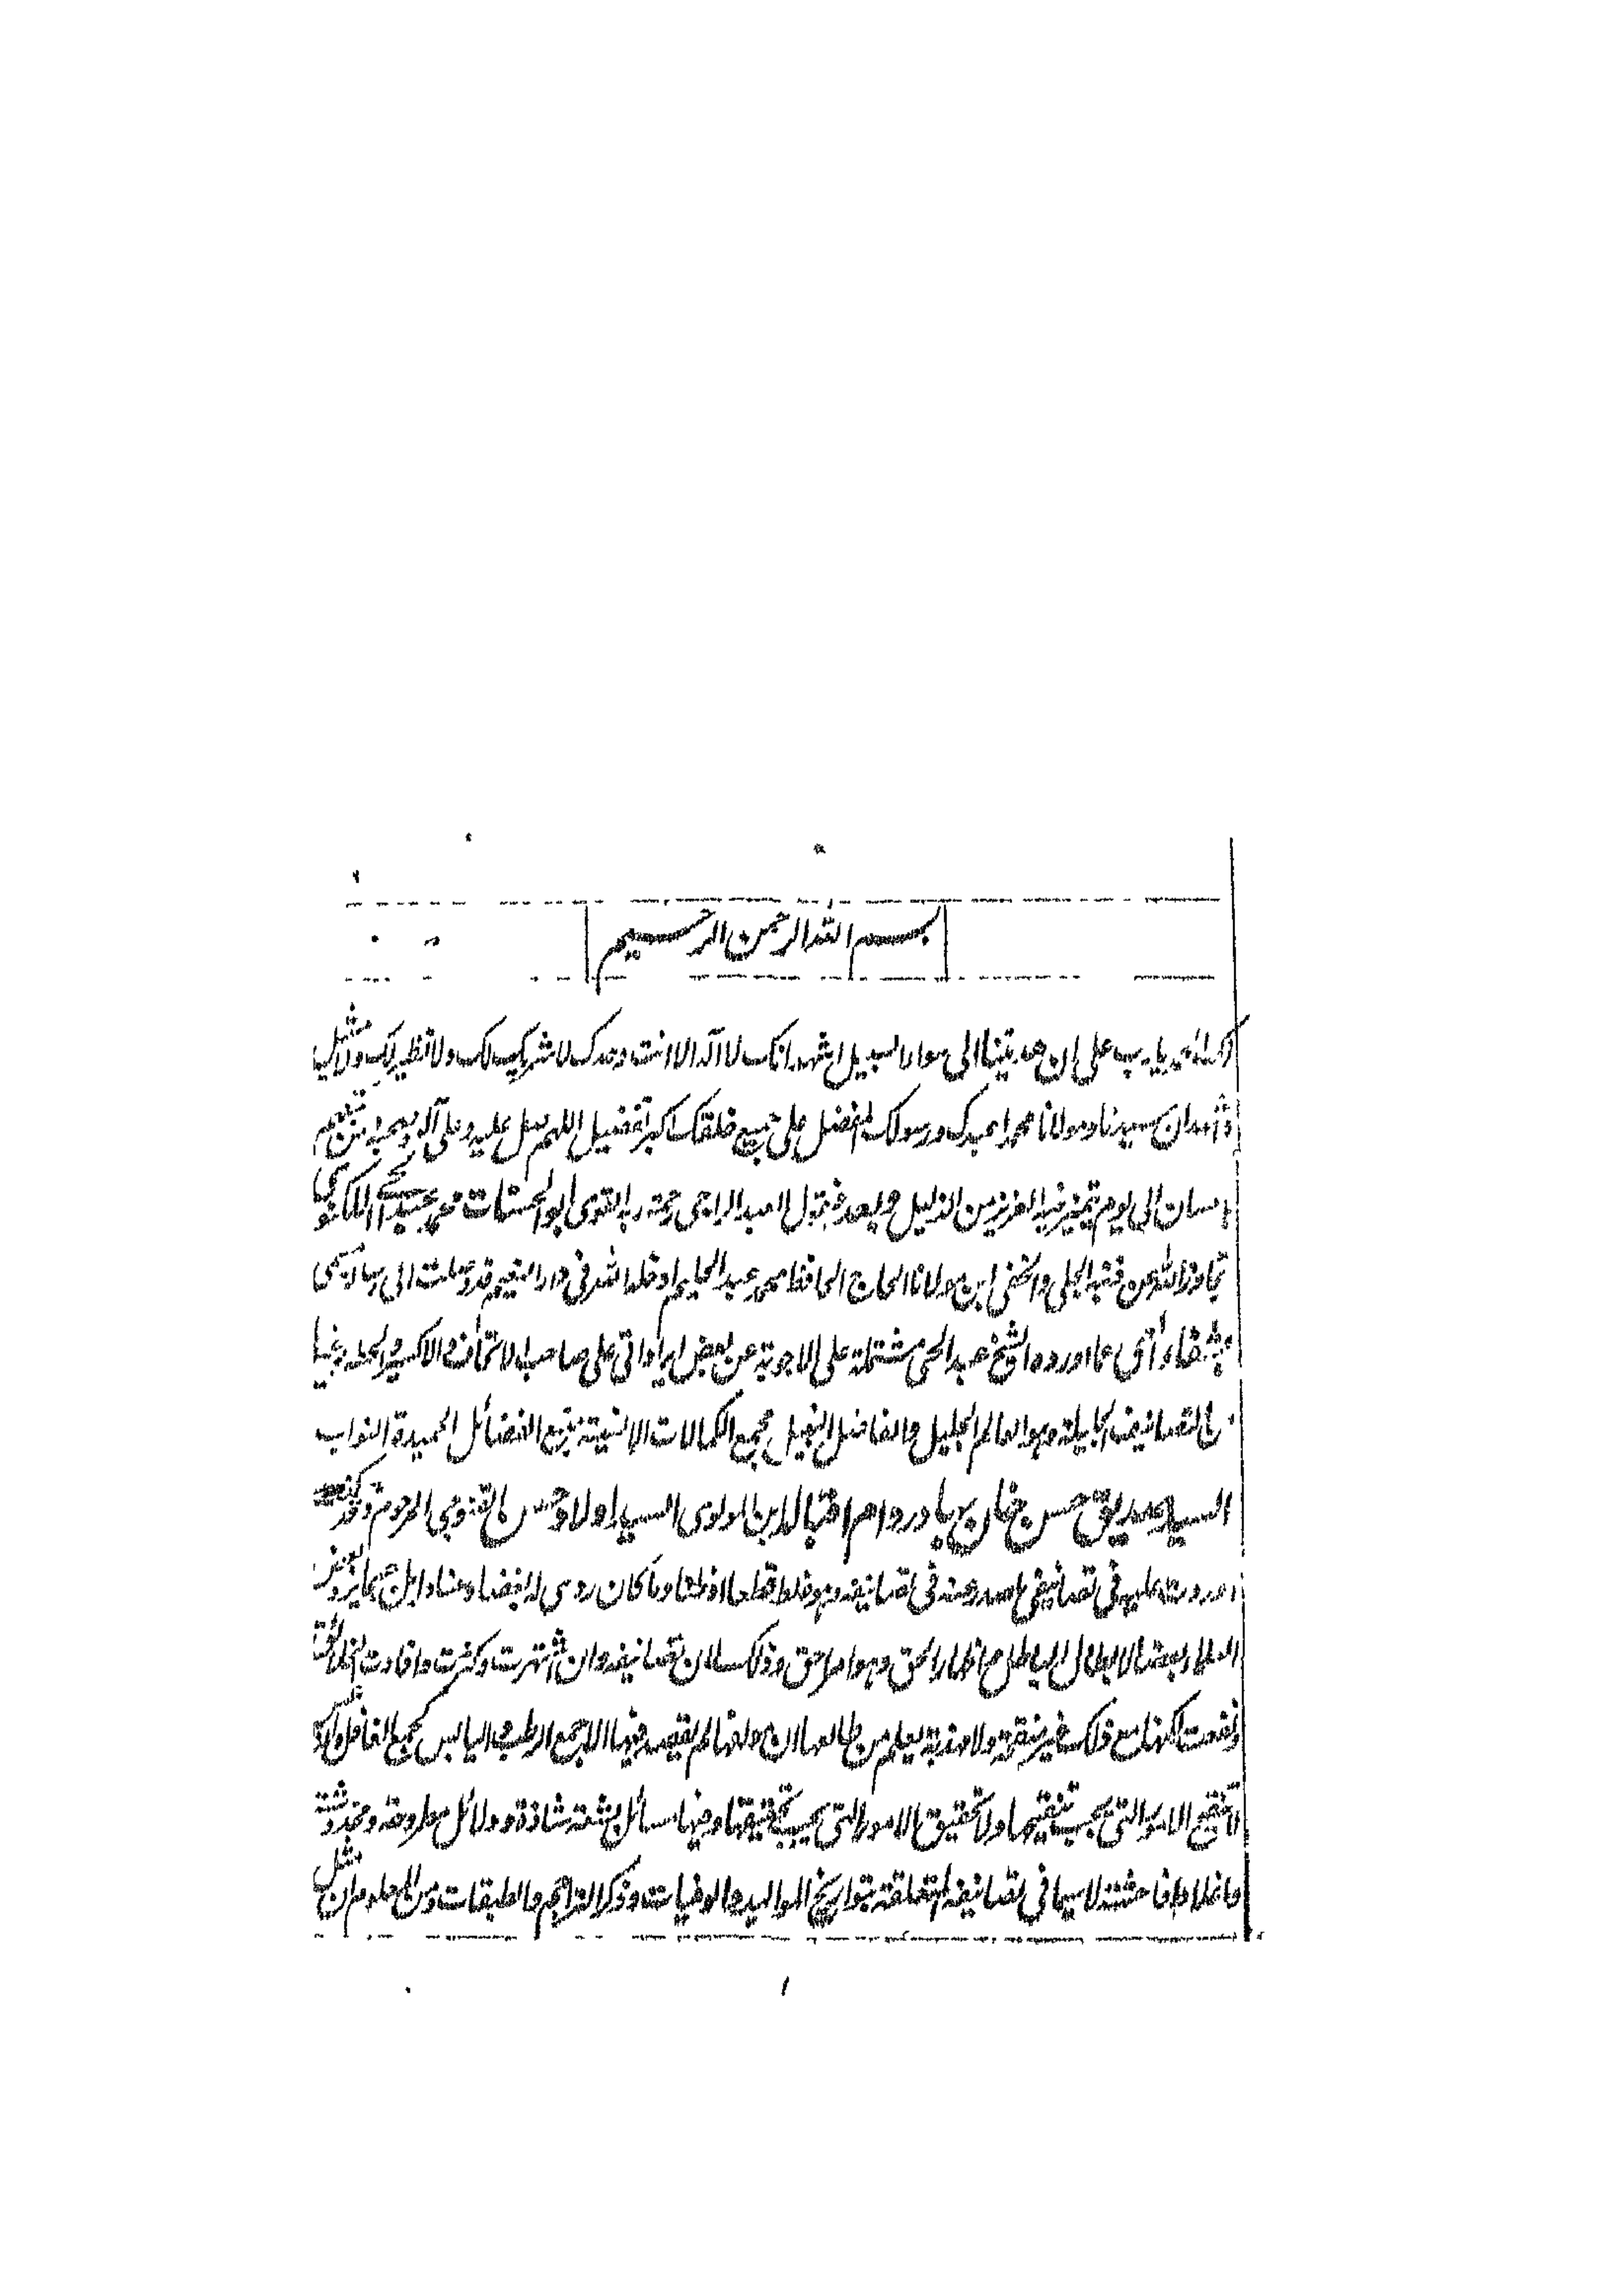 بسم الله الرحمن الرحيم
لك الحمد يا رب على ان هديتنا الى سواء السبيل اشهد انك لا اله الا انت وحدك لا شريك لك ولا نظير لك ولا مثيل
واشهد ان سيدنا ومولانا محمدا عبدك ورسولك المفضل على جميع خلقك اكبر تفضيل اللهم صل عليه وعلى آله وصحبه ومن تبعهم
باحسان الى يوم يتميز فيه العزيز من الذليل وبعد فيقول العبد الراجي رحمة ربه القوي ابو الحسنات محمد عبد الحي اللكنوي
تجاوز الله عن ذنبه الجلي والخفي ابن مولانا الحاج الحافظ محمد عبد الحليم ادخله الله في دار النعيم قد وصلت الى رسالة مسمى
بشفاء العي عما اورده الشيخ عبد الحي مشتملة على الاجوبة عن بعض ايراداتي على صاحب الاتحاف والاكسير والحطة وغيرها
من التصانيف الجليلة وهو العالم الجليل والفاضل النبيل مجمع الكمالات الانسية منبع الفضائل الحميدة النواب
السيد صديق حسن خان بهادر دام اقباله ابن المولوي السيد اولاد حسن القنوجي المرحوم وقد كنت
اوردت عليه في تصانيفي بما صدر عنه في تصانيفه وهو غلط قطعا او ظنا وما كان ردي له بغضا وعنادا بل كما يرد بعض
العلماء بعضا لابطال الباطل واظهار الحق وهو امر احق وذلك لان تصانيفه وان اشتهرت وكثرت وافادت الخلائق
ونفعت لكنها مع ذلك غير منقحة ولا مهذبة يعلم من طالعها ان مؤلفها لم يقصد فيها الا جمع الرطب واليابس كجمع الغافل والناعس
لا تنقيح الامور التي يجب تنقيحها ولا تحقيق الامور التي يجب تحقيقها وفيها مسائل بشعة شاذة ودلائل مطروحة ومخدوشة
واغلاط فاحشة لا سيما في تصانيفه المتعلقة بتواريخ المواليد والوفيات وذكر التراجم والطبقات ومن المعلوم ان مثل